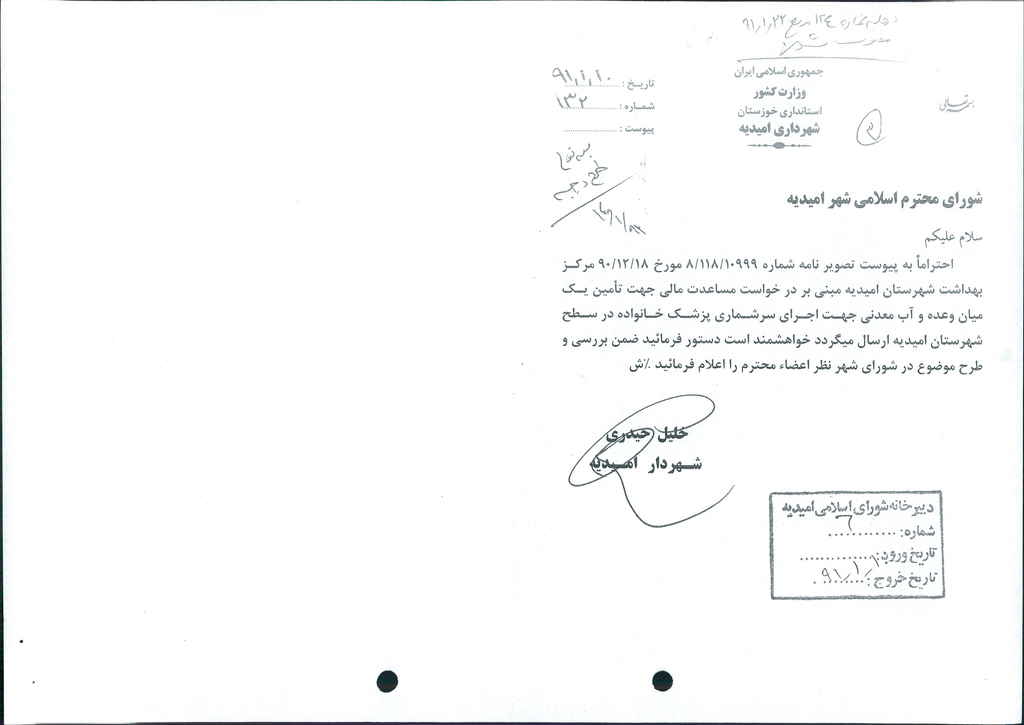 جمهوری اسلامی ایران
وزارت کشور
استانداری خوزستان
شهرداری امیدیه
تاریخ : ۹۱,۱,۱۰
شماره : ۱۳۲
پیوست :
شورای محترم اسلامی شهر امیدیه
سلام علیکم
احتراماً به پیوست تصویر نامه شماره ۸/۱۱۸/۱۰۹۹۹ مورخ ۹۰/۱۲/۱۸ مرکز
بهداشت شهرستان امیدیه مبنی بر در خواست مساعدت مالی جهت تأمین یک
میان وعده و آب معدنی جهت اجرای سرشماری پزشک خانواده در سطح
شهرستان امیدیه ارسال میگردد خواهشمند است دستور فرمائید ضمن بررسی و
طرح موضوع در شورای شهر نظر اعضاء محترم را اعلام فرمائید ٪ش
خلیل حیدری
شهردار امیدیه
دبیرخانه شورای اسلامی امیدیه
شماره: ۶
تاریخ ورود:
تاریخ خروج :